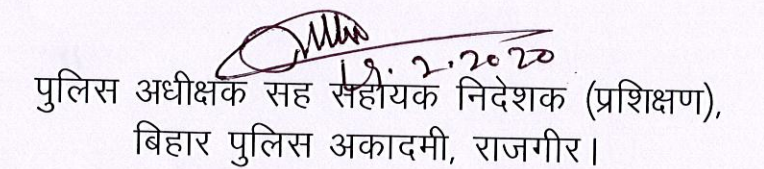 19.2.2020
पुलिस अधीक्षक सह सहायक निदेशक (प्रशिक्षण),
बिहार पुलिस अकादमी, राजगीर।